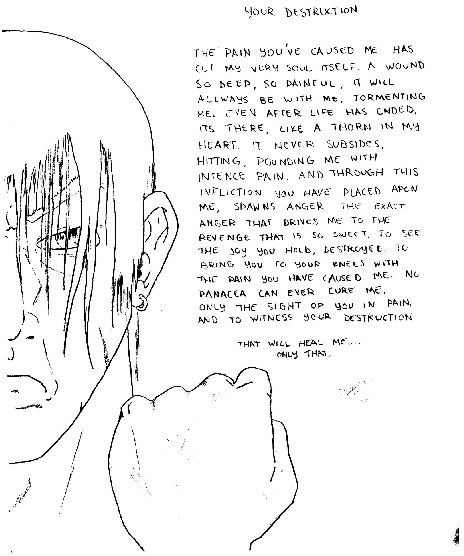 YOUR DESTRUCTION
THE PAIN YOU'VE CAUSED ME HAS
CUT MY VERY SOUL ITSELF. A WOUND
SO DEEP, SO PAINFUL, IT WILL
ALLWAYS BE WITH ME, TORMENTING
ME. EVEN AFTER LIFE HAS ENDED,
ITS THERE, LIKE A THORN IN MY
HEART. IT NEVER SUBSIDES,
HITTING, POUNDING ME WITH
INTENCE PAIN. AND THROUGH THIS
INFLICTION YOU HAVE PLACED APON
ME, SPAWNS ANGER THE EXACT
ANGER THAT DRIVES ME TO THE
REVENGE THAT IS SO SWEET, TO SEE
THE JOY YOU HOLD, DESTROYED. TO
BRING YOU TO YOUR KNEES WITH
THE PAIN YOU HAVE CAUSED ME. NO
PANACEA CAN EVER CURE ME,
ONLY THE SIGHT OF YOU IN PAIN,
AND TO WITNESS YOUR DESTRUCTION
THAT WILL HEAL ME....
ONLY THAT.